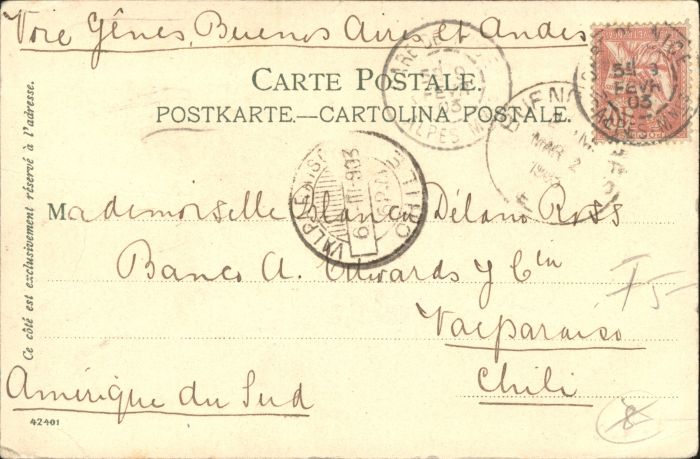 Voie Gênes, Buenos Aires et Andes
CARTE POSTALE.
POSTKARTE.—CARTOLINA POSTALE.
Ce côté est exclusivement réservé à l'adresse.
GARE DE
5E 9
FEVR
03
ALPES M
5E 9
FEVR
03
BUENO
MAR 2
VALPARAISO
CHILE
6 III 903
Mademoiselle Blanca Délano Ross
Banco A. Edwards y Cia
Valparaiso
Chili
Amérique du Sud
42401
5-
8